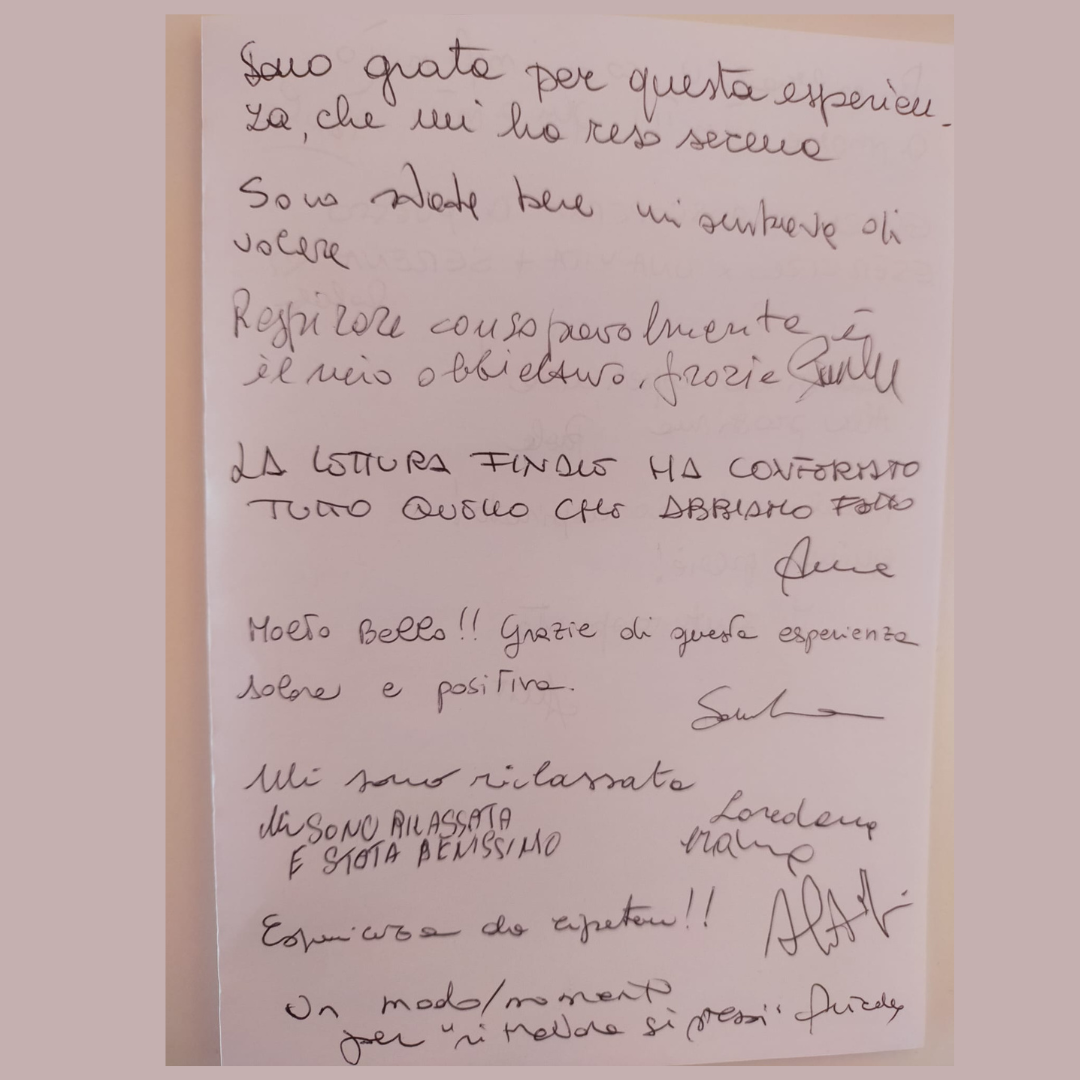 Sono grata per questa esperien-
za, che mi ha reso serena
Sono stata bene mi sembrava di
volare
Respirare consapevolmente è
il mio obbiettivo. grazie
LA LETTURA FINALE HA CONFORTATO
TUTTO QUELLO CHE ABBIAMO FATTO
Anna
Molto Bello!! Grazie di questa esperienza
solare e positiva.
Mi sono rilassata
Loredana
Mi SONO RILASSATA
E STATA BENISSIMO
Esperienza da ripetere!!
Un modo/momento
per "ritrovare si pezzi"